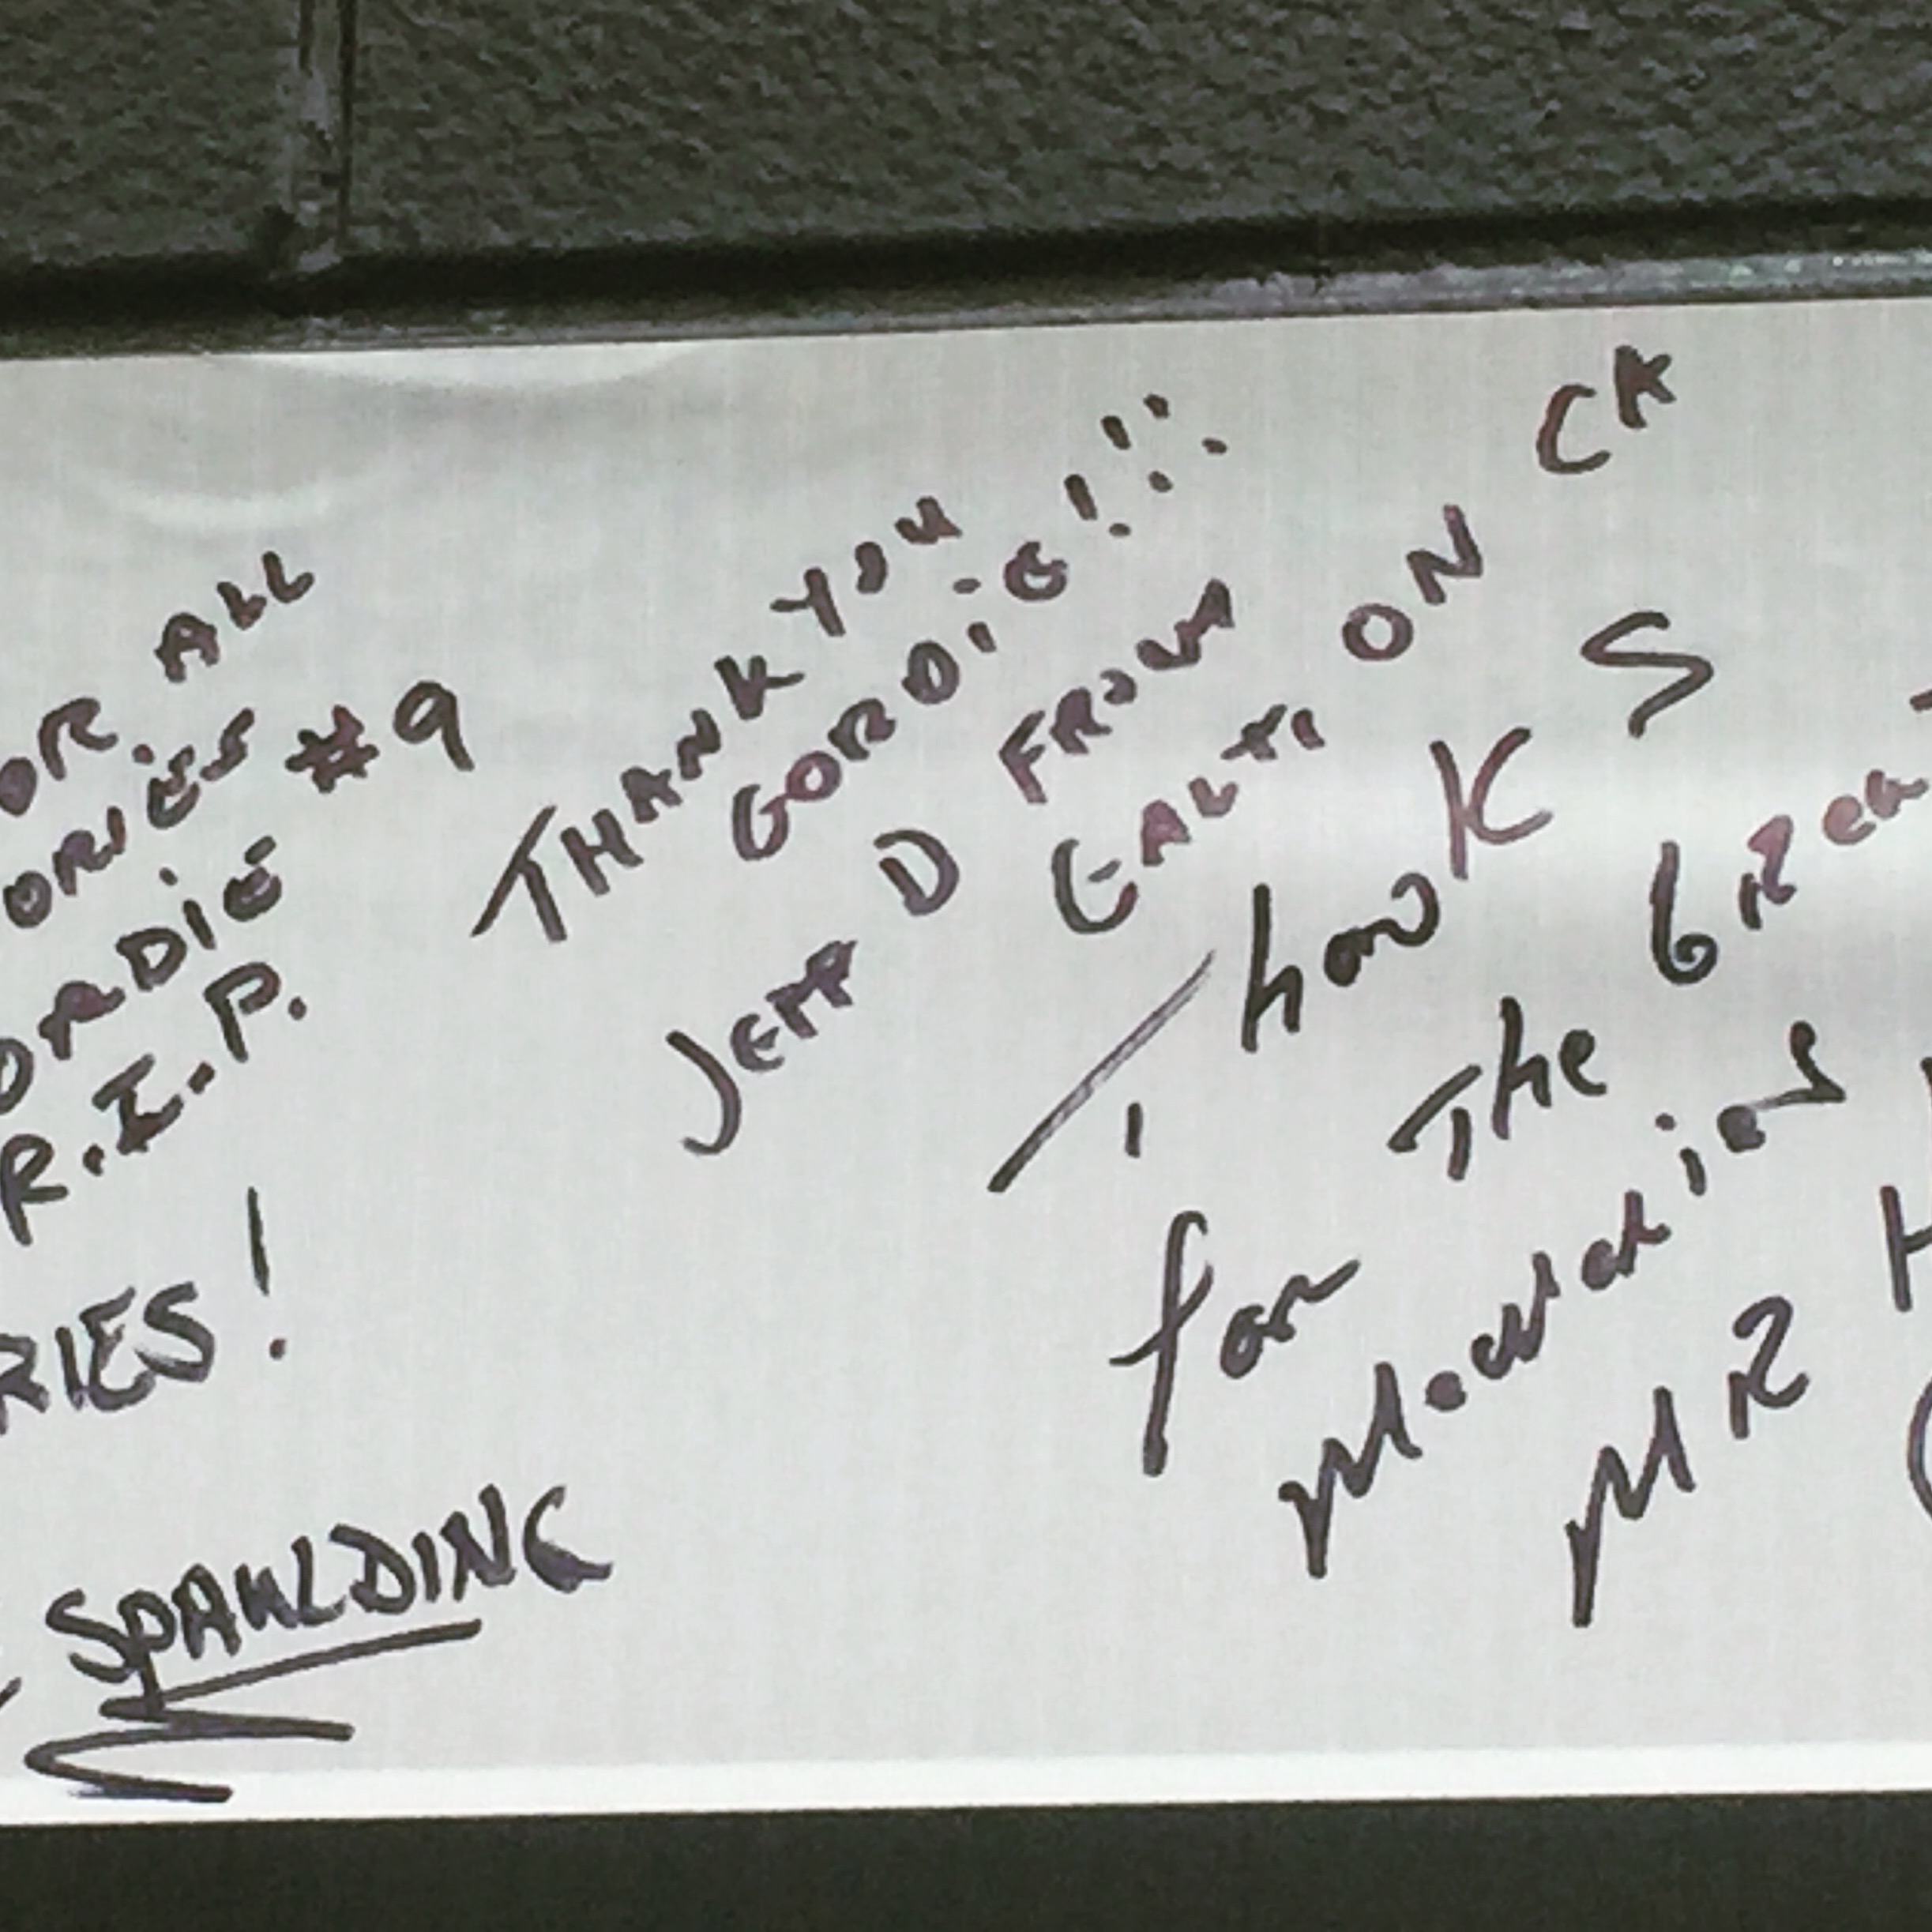 OR ALL
ORIES #9
ORDIE
R.I.P.
RIES!
SPAULDING
THANK YOU
GORDIE!!!
JEFF D FROM
CK
ON
Thanks
for The Great
Memories
MR H